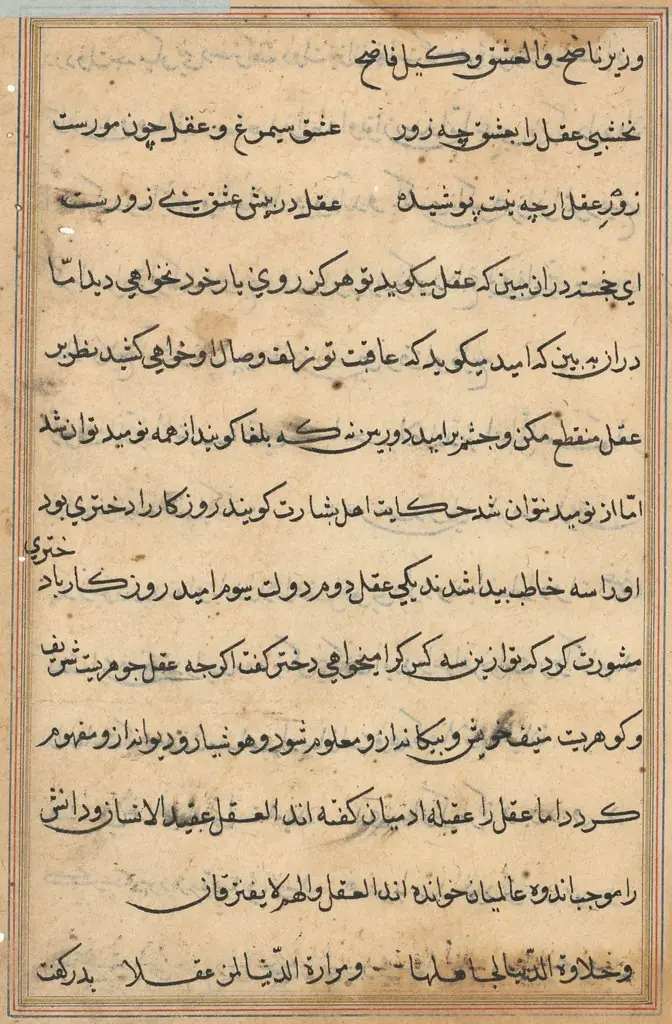 وزیر ناضح والعشق وکیل فاضح
نخشبی عقل را بعشق چه زور عشق سیمرغ و عقل چون مورست
زور عقل ارچه نیست پوشیده عقل در پیش عشق بی زورست
ای خجسته دران مبین که عقل میکوید تو هرکز روی یار خود نخواهی دید اما
دران به بین که امید میکوید که عاقبت تو زلف وصال او خواهی کشید نظر بر
عقل منقطع مکن و چشم بر امید دوربین نه که بلغا کویند از همه نومید توان شد
اما از نومید نتوان شد حکایت اهل بشارت کویند روزکار را دختری بود
او را سه خاطب پیدا شدند یکی عقل دوم دولت سوم امید روزکار با دختری
مشورت کرد که تو ازین سه کس کرا میخواهی دختر کفت اکرچه عقل جوهریست شریف
و کوهریست منیف خویش و بیکانه ازو معلوم شود و هوشیار و دیوانه ازو مفهوم
کردد اما عقل را عقیله ادمیان کفته اند العقل عقید الانسان و دانش
را موجب اندوه عالمیان خوانده اند العقل والهم لا یفترقان
وحلاوة الدنیا لجاهلها ومرارة الدنیا لمن عقلا پدر کفت